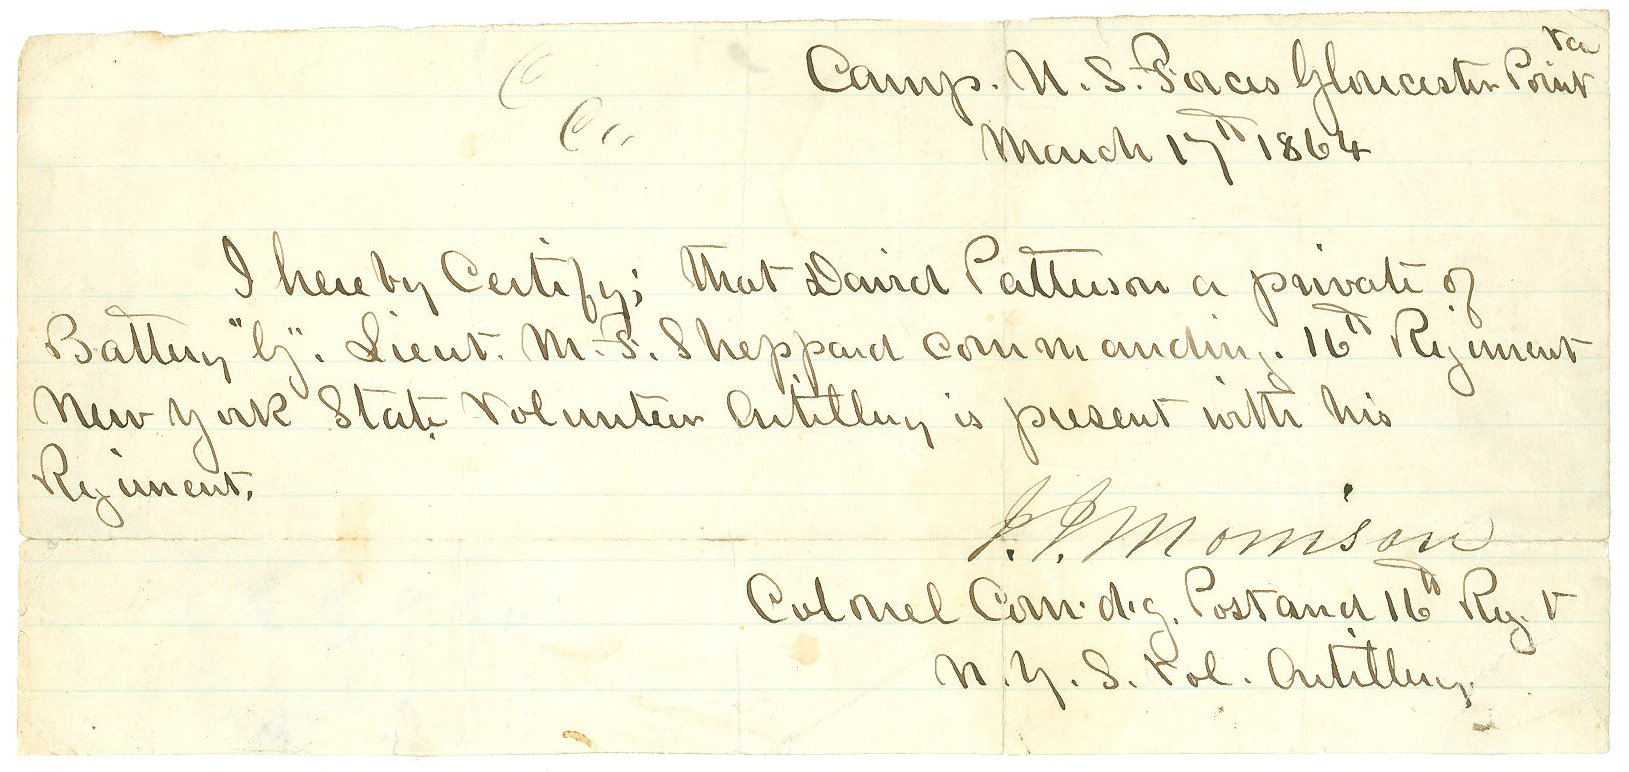 Va
Camp. U. S. Forces Gloucester Point
March 17th 1864
C
Co
I hereby Certify; that David Patterson a private of
Battery "G". Lieut. M. F. Sheppard commanding. 16th Regiment
New York State Volunteer Artillery is present with his
Regiment.
J. J. Morrison
Colonel Com.d.g. Post and 16th Reg.t
N. Y. S. Vol. Artillery.